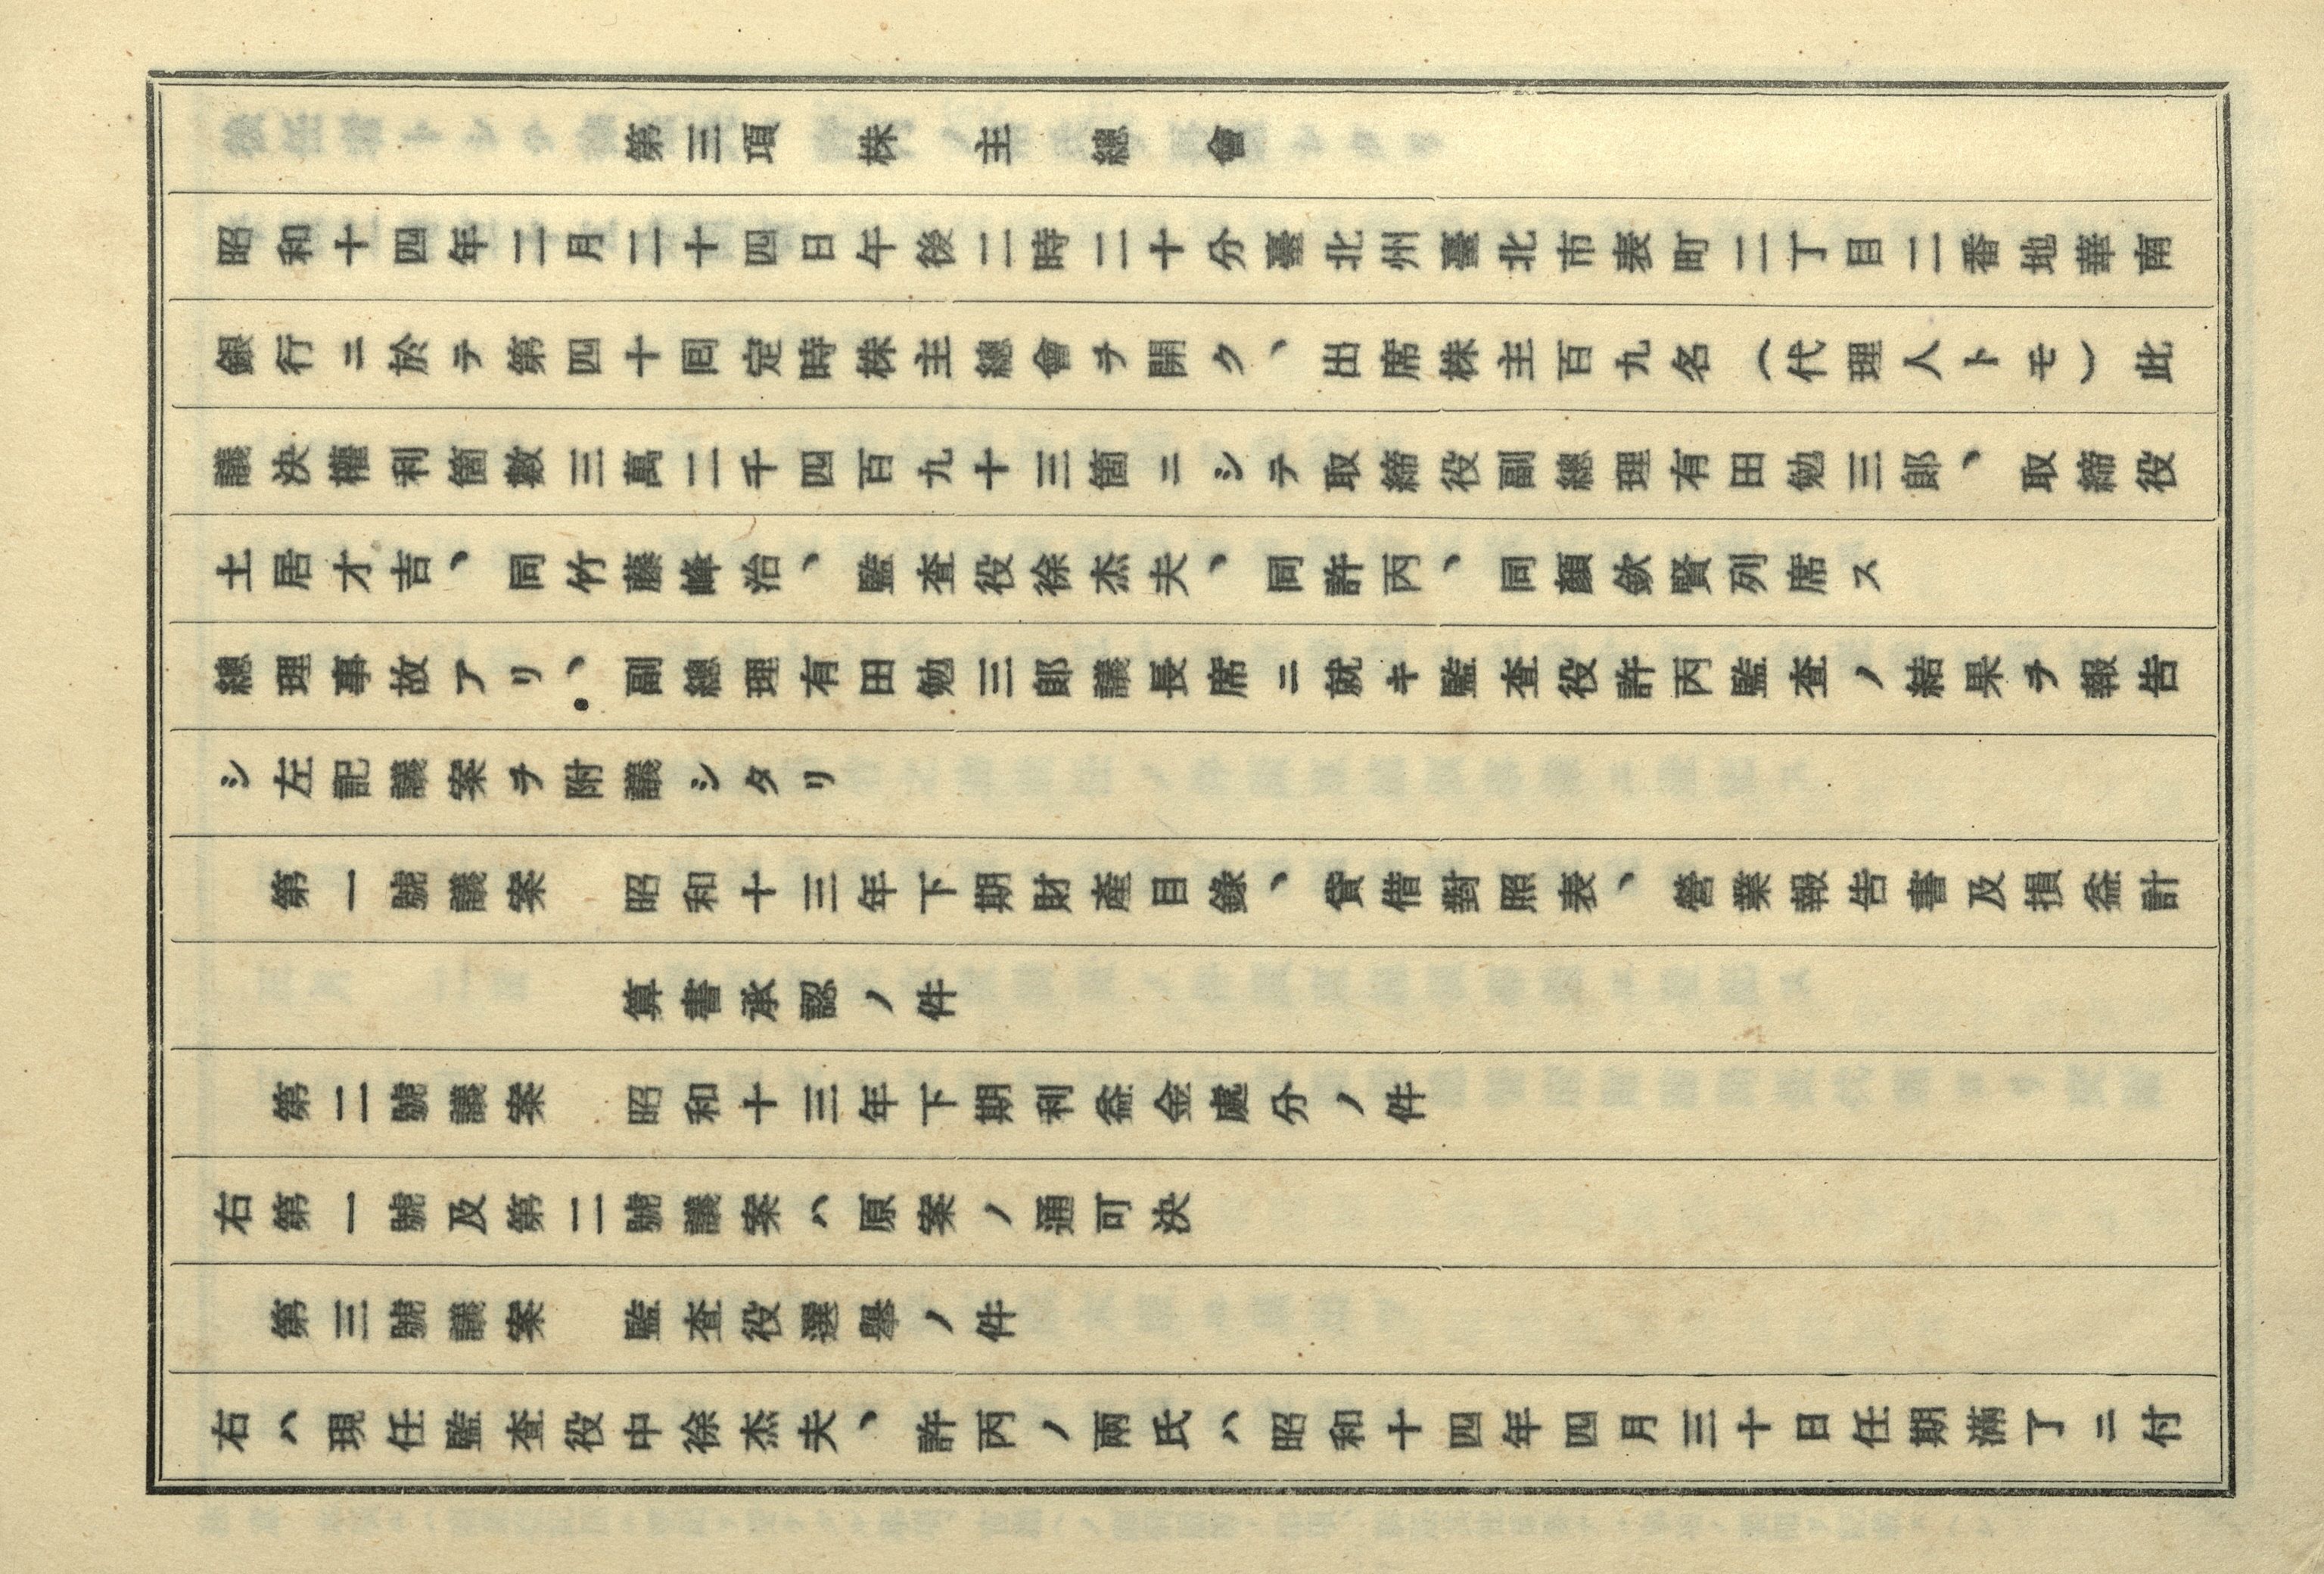 第三項　株　主　總　會
昭和十四年二月二十四日午後二時二十分臺北州臺北市表町二丁目二番地華南
銀行ニ於テ第四十回定時株主總會ヲ開ク、出席株主百九名（代理人トモ）此
議決權利箇數三萬二千四百九十三箇ニシテ取締役副總理有田勉三郎、取締役
土居才吉、同竹藤峰治、監査役徐杰夫、同許丙、同顏欽賢列席ス
總理事故アリ、副總理有田勉三郎議長席ニ就キ監査役許丙監査ノ結果ヲ報告
シ左記議案ヲ附議シタリ
第一號議案　昭和十三年下期財產目錄、貸借對照表、營業報告書及損益計
算書承認ノ件
第二號議案　昭和十三年下期利益金處分ノ件
右第一號及第二號議案ハ原案ノ通可決
第三號議案　監査役選舉ノ件
右ハ現任監査役中徐杰夫、許丙ノ兩氏ハ昭和十四年四月三十日任期滿了ニ付